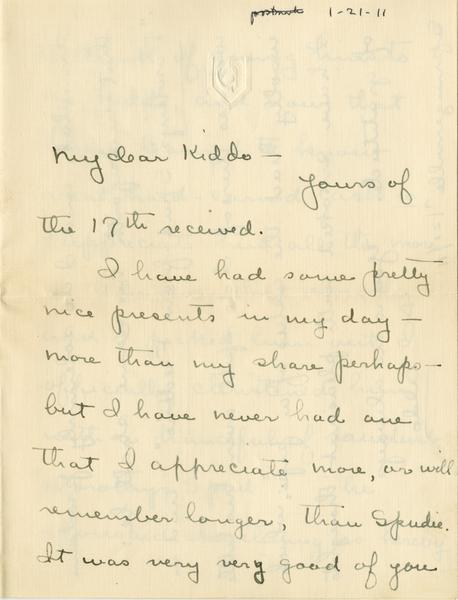 postmark 1-21-11
My dear Kiddo —
Yours of
the 17th received.
I have had some pretty
nice presents in my day —
more than my share perhaps —
but I have never had one
that I appreciate more, or will
remember longer, than Spudie.
It was very very good of you